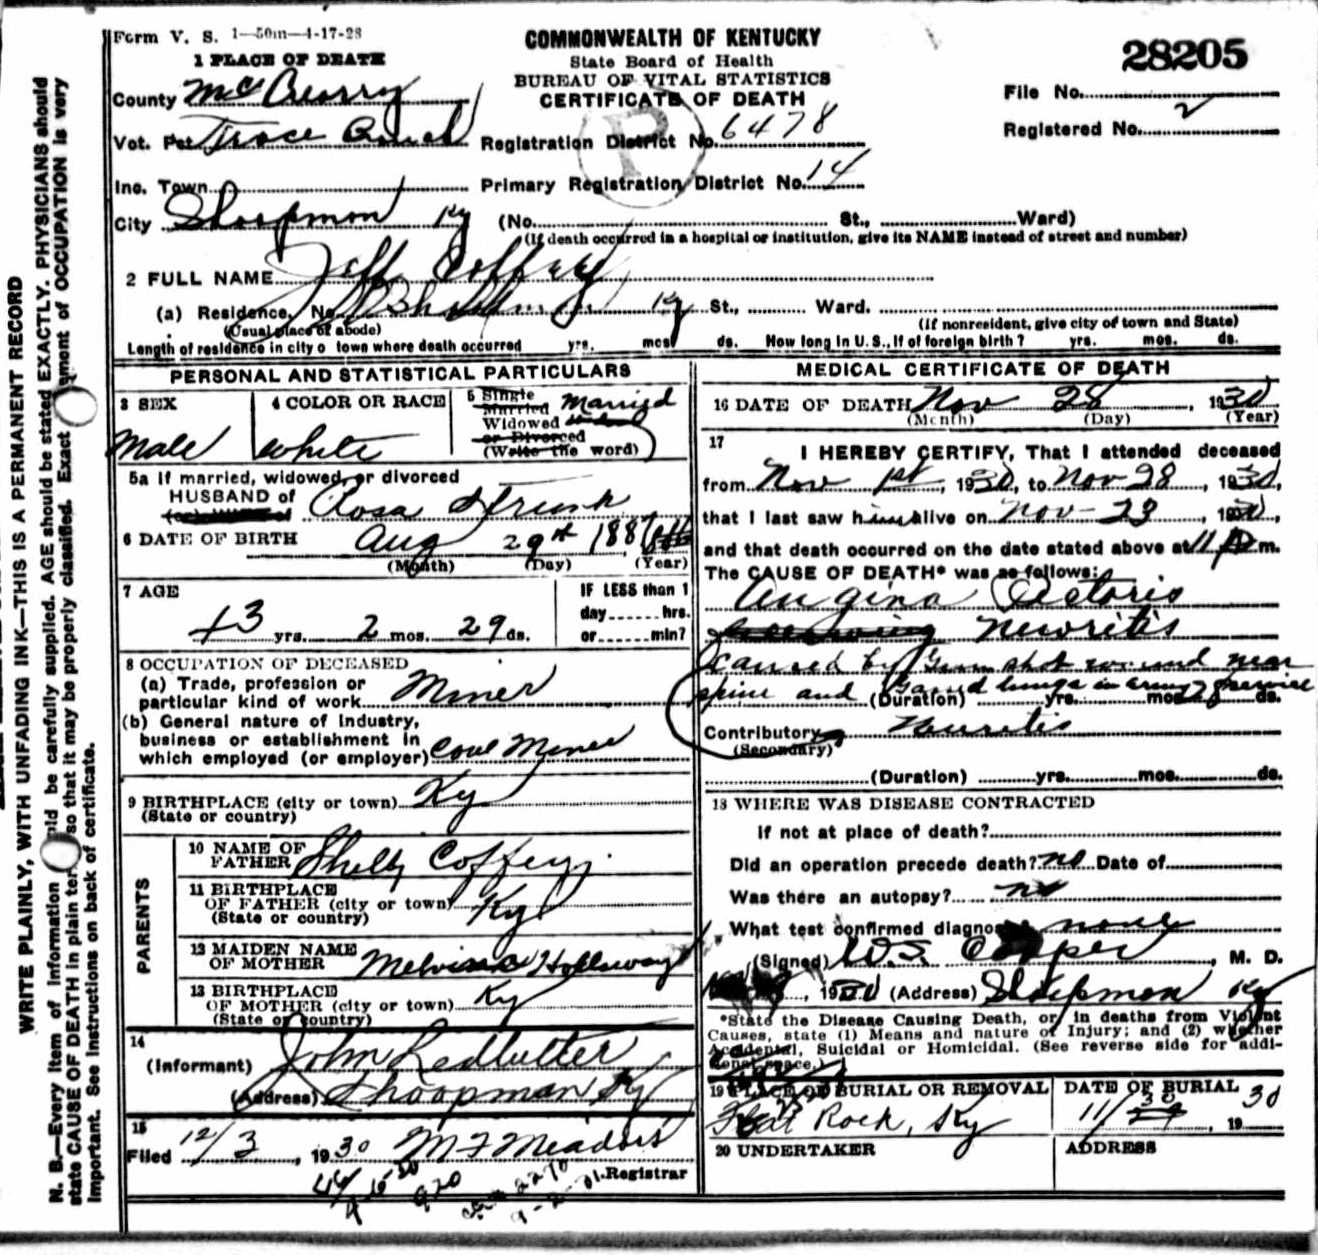 Form V. S. 1—50m—4-17-28
COMMONWEALTH OF KENTUCKY
State Board of Health
BUREAU OF VITAL STATISTICS
CERTIFICATE OF DEATH
28205
1 PLACE OF DEATH
County McCreary
File No.
Vot. Pct
Registration District No. 6478
Registered No. 2
Inc. Town
Primary Registration District No. 14
City Shoopman Ky (No. St., Ward)
(If death occurred in a hospital or institution, give its NAME instead of street and number)
2 FULL NAME Jeff Coffey
(a) Residence, No. Ky St., Ward.
(Usual place of abode) (If nonresident, give city of town and State)
Length of residence in city o town where death occurred yrs. mos ds. How long in U. S., If of foreign birth? yrs. mos. ds.
PERSONAL AND STATISTICAL PARTICULARS
3 SEX
Male
4 COLOR OR RACE
White
5 Single
Married Married
Widowed
or Divorced
(Write the word)
5a If married, widowed, or divorced
HUSBAND of Rosa Strunk
6 DATE OF BIRTH Aug 29th
(Month) (Day) (Year)
7 AGE
43 yrs. 2 mos. 29 ds.
IF LESS than 1
day hrs.
or min?
8 OCCUPATION OF DECEASED
(a) Trade, profession or
particular kind of work Miner
(b) General nature of Industry,
business or establishment in
which employed (or employer) Coal Miner
9 BIRTHPLACE (city or town) Ky
(State or country)
PARENTS
10 NAME OF
FATHER Shelly Coffey
11 BIRTHPLACE
OF FATHER (city or town) Ky
(State or country)
12 MAIDEN NAME
OF MOTHER Melvina Holloway
13 BIRTHPLACE
OF MOTHER (city or town) Ky
(State or country)
14
(Informant) John Ledbetter
(Address) Shoopman Ky
15
Filed 12/3, 1930 M F Meadors
Registrar
MEDICAL CERTIFICATE OF DEATH
16 DATE OF DEATH Nov 28, 1930
(Month) (Day) (Year)
17
I HEREBY CERTIFY, That I attended deceased
from Nov 1st, 1930, to Nov 28, 1930,
that I last saw him alive on Nov - 23, 1930,
and that death occurred on the date stated above at 11 P m.
The CAUSE OF DEATH* was as follows:
Angina Pectoris
Neuritis
caused by Gun shot wound near
spine and lungs in army service
(Duration) yrs. mos ds.
Contributory Neuritis
(Secondary)
(Duration) yrs. mos. ds.
18 WHERE WAS DISEASE CONTRACTED
If not at place of death?
Did an operation precede death? no Date of
Was there an autopay? no
What test confirmed diagnosis none
(Signed) W.S. Cooper, M. D.
, 1930 (Address) Shoopman Ky
*State the Disease Causing Death, or, in deaths from Violent
Causes, state (1) Means and nature of Injury; and (2) whether
Accidental, Suicidal or Homicidal. (See reverse side for addi-
tional space.)
19 PLACE OF BURIAL OR REMOVAL
Flat Rock, Ky
DATE OF BURIAL
11/30, 1930
20 UNDERTAKER
ADDRESS
WRITE PLAINLY, WITH UNFADING INK—THIS IS A PERMANENT RECORD
N. B.—Every item of information should be carefully supplied. AGE should be stated EXACTLY. PHYSICIANS should
state CAUSE OF DEATH in plain terms so that it may be properly classified. Exact statement of OCCUPATION is very
important. See instructions on back of certificate.